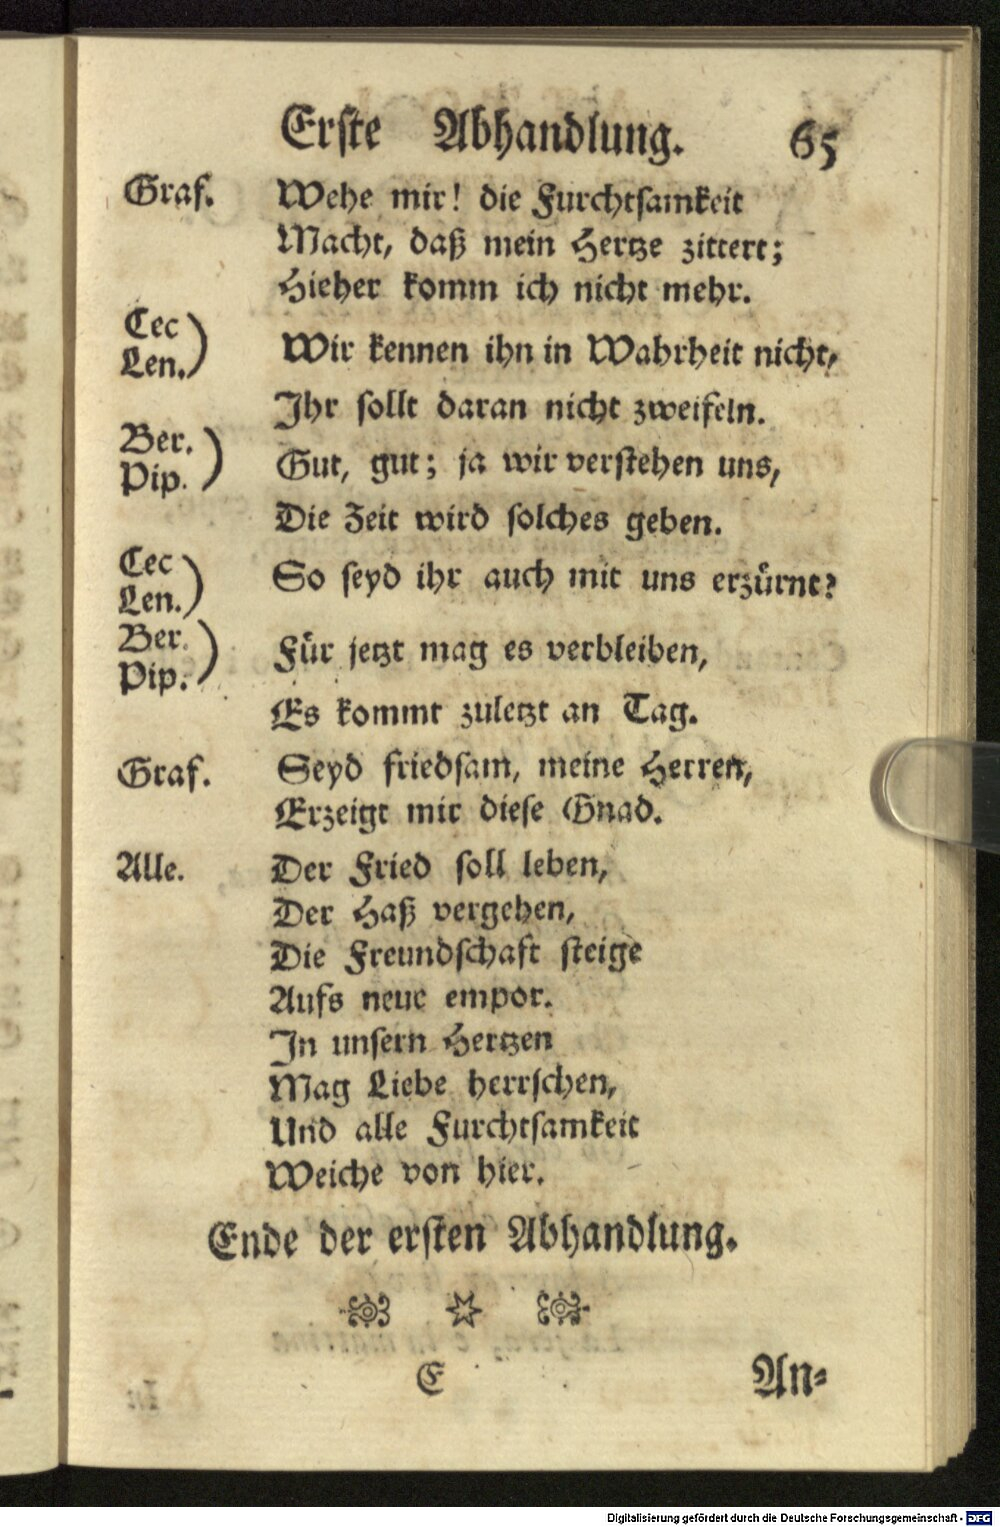 Erste Abhandlung. 65
Graf. Wehe mir! die Furchtsamkeit
Macht, daß mein Hertze zittert;
Hieher komm ich nicht mehr.
Cec
Len.) Wir kennen ihn in Wahrheit nicht,
Ihr sollt daran nicht zweifeln.
Ber.
Pip.) Gut, gut; ja wir verstehen uns,
Die Zeit wird solches geben.
Cec
Len.) So seyd ihr auch mit uns erzürnt?
Ber.
Pip.) Für jetzt mag es verbleiben,
Es kommt zuletzt an Tag.
Graf. Seyd friedsam, meine Herren,
Erzeigt mir diese Gnad.
Alle. Der Fried soll leben,
Der Haß vergehen,
Die Freundschaft steige
Aufs neue empor.
In unsern Hertzen
Mag Liebe herrschen,
Und alle Furchtsamkeit
Weiche von hier.
Ende der ersten Abhandlung.
E An-
Digitalisierung gefördert durch die Deutsche Forschungsgemeinschaft - DFG